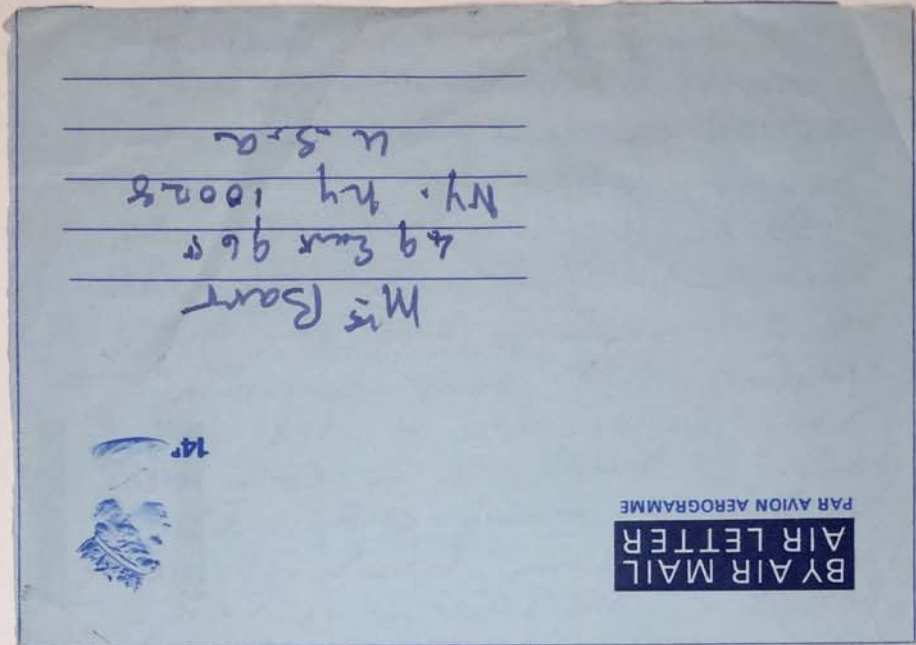 BY AIR MAIL
AIR LETTER
PAR AVION AEROGRAMME
14P
Mrs Barr
49 East 96th
NY. Ny 10028
U.S.A